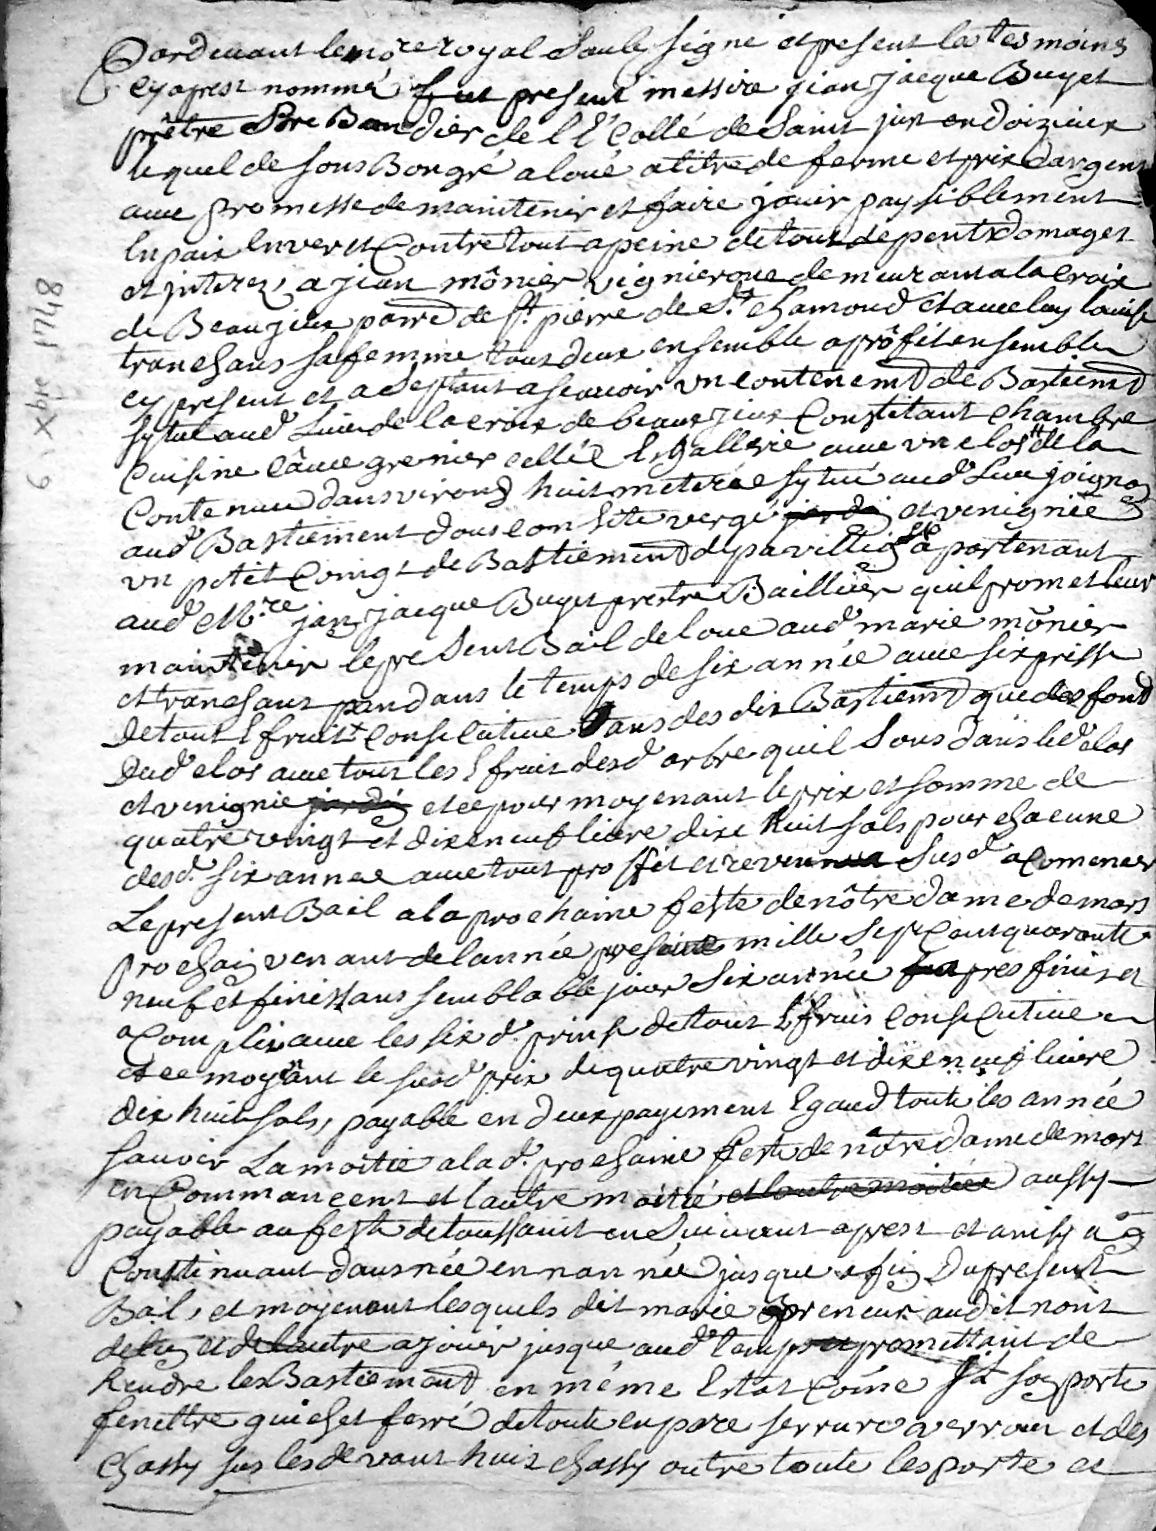 Pardevant le no.re royal Soub signé et present les tesmoins
cy aprest nommé fut present messire jean jacque Buyet
prêtre Prebandier de l'Ecollé de Saint jus en doizieux
lequel de sous Bongré a loué a titre de ferme et prix dargent
avec promesse de maintenir et faire jouir paysiblement
En paix Envert Contre tout a peine de tout depent domages
et interez, a jean mônier vignieron demeurant a la croix
de Beaujeux parr.d de St pierre de St chamoud et avec luy louise
tranchans sa femme tous deux ensemble a prôfit ensemble
cy present et adeptant a scavoir un contenem.t de Bastiem.t
sytué aud. Lieu de la croix de beaux jeux Constitant chambre
Cuisine Câve grenier cellié Et Gallerie avec un clos de la
Contenue dans viron huit meterée sytué aud. Lieu joignan
aud. Bastiement dous con siste vergé et venigniée
un petit Coingt de Bastiement de pavillion apartenant
aud. M.re jan jacque Buyet prestre Baillier quil promet leur
maintenir le present Bail de loue aud. marie mônier
et tranchant pandans le temps de six année avec six prisse
de tout Effruit Consecutive dans des dit Bastiem.t que des fond
Dud. clos avec tout les Effruit desd. arbre quil sous dans led. clos
et venignie et ce pour moyenant le prix et somme de
quatre vingt et dix en neuf livre dixe huit sols pour chacune
desd. six annee avec tout proffit et revenu susd. a Comencer
Le present Bail a la prochaine feste de nôtre dame de mars
prochain venant de lannée mille Sept Cent quarante
neuf et finissans semblable jour six année apres finir et
a Complir avec les six d. prinse de tout Effruis Consecutive
et ce moyênt le susd. prix de quatre vingt et dix en neuf livre
dix huit sols, payable en deux payement Egaud toute les année
sauvoir La moitié a la d. prochaine feste de nôtre dame de mars
en Commancent et lautre moitié et lautre moitiée aussy
payable au feste de toussaint en Suivant aprest et ainsy
Continuant dannée en nannée jusque a fin Du present
Bail, et moyenant lesquels dit marié preneur audit nont
de lun et de lautre a jouir jusque aud. temps et promettant de
Rendre les Bastiement en méme Estat Côme sa porte
fenettre qui est ferré de toute en pare serrure a verrour et des
Chassy sus les devant huit chassy outre toute les porte et
6 xbre 1748